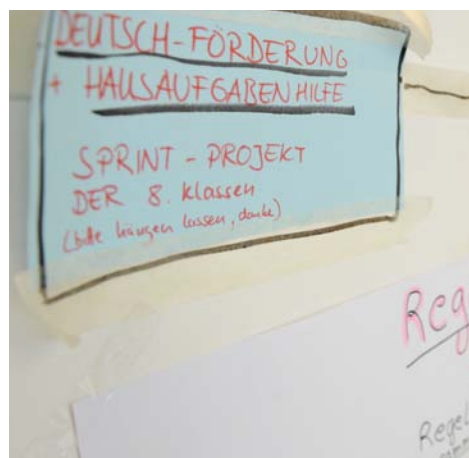 DEUTSCH-FÖRDERUNG
+ HAUSAUFGABENHILFE
SPRINT - PROJEKT
DER 8. klassen
(bitte hängen lassen, danke)
Reg
Regel